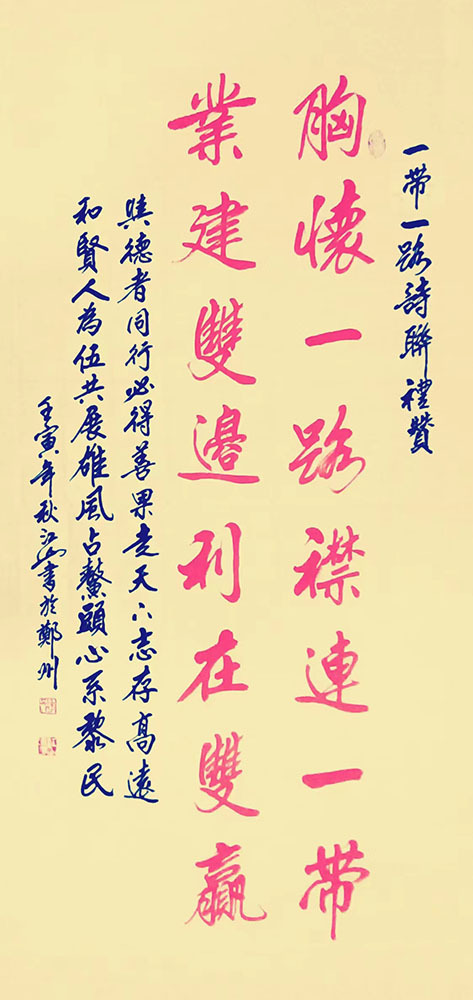 一帶一路詩聯禮贊
胸懷一路襟連一帶
業建雙邊利在雙贏
與德者同行必得善果走天下志存高遠
和賢人為伍共展雄風占鰲頭心系黎民
壬寅年秋江山書於鄭州